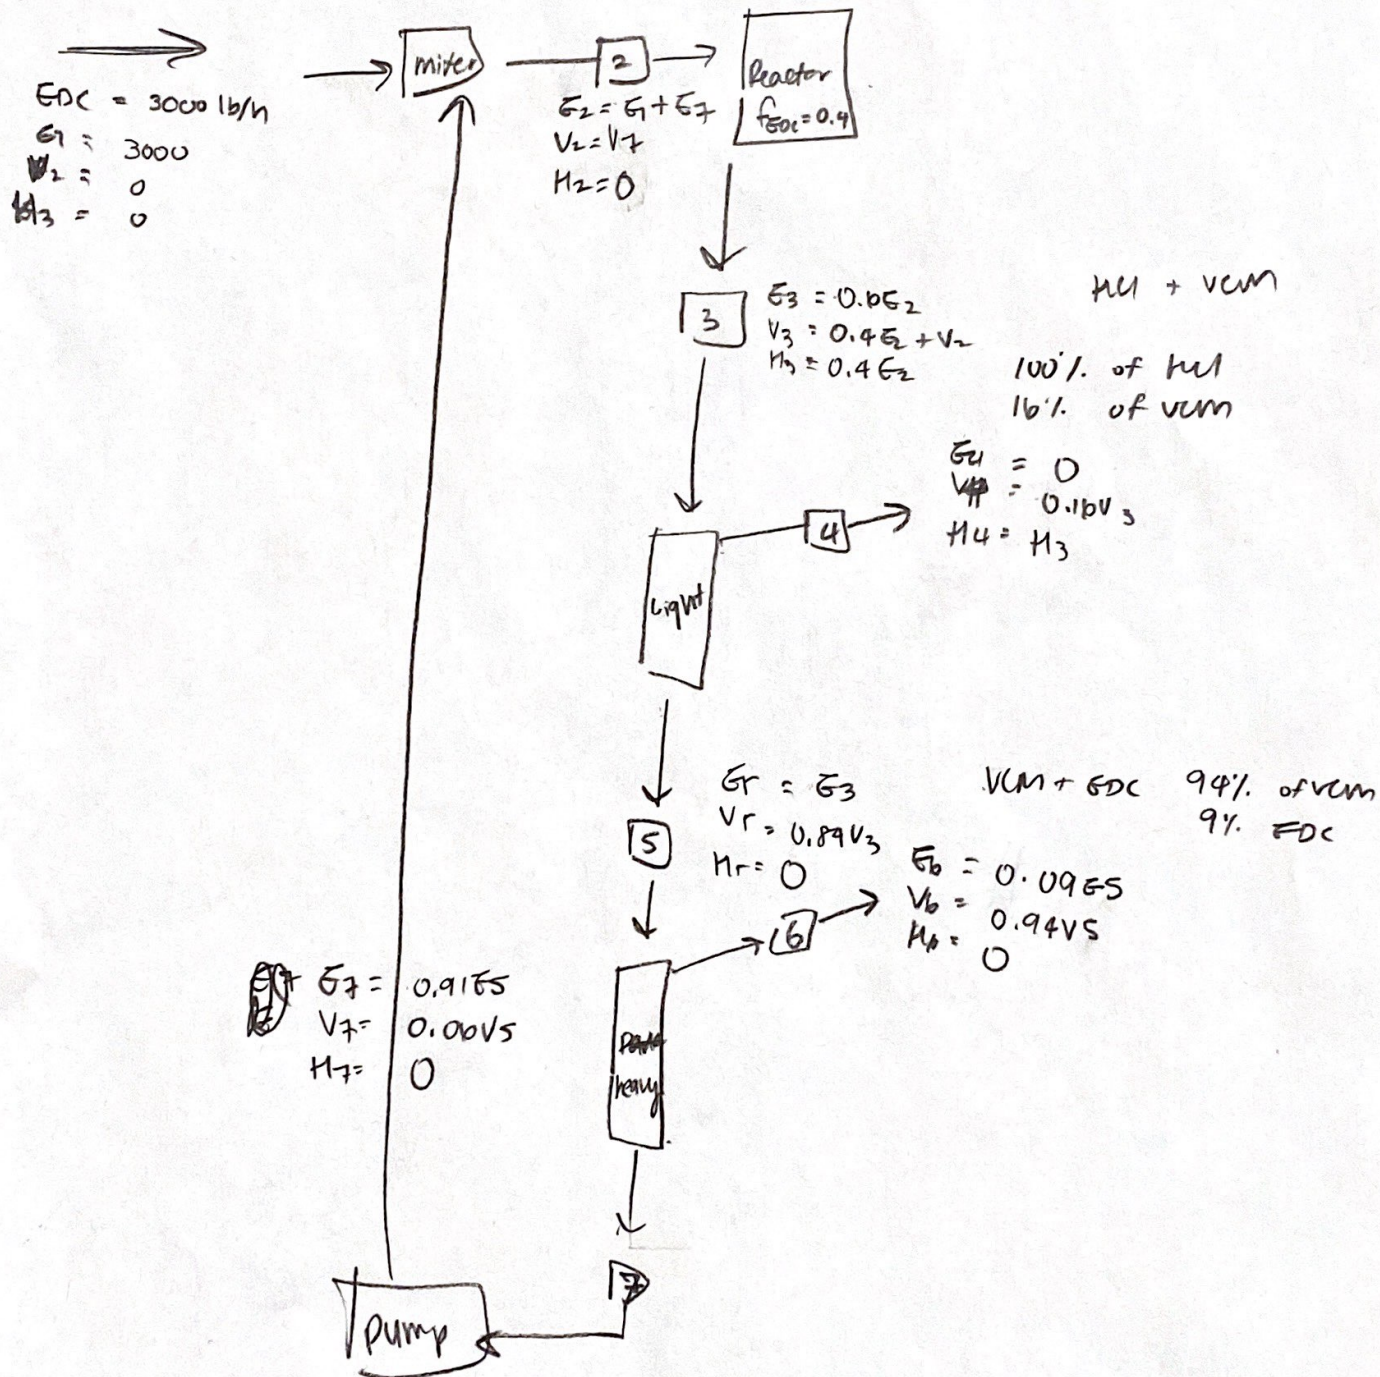 EDC = 3000 lb/h
E1 = 3000
V2 = 0
H3 = 0
mixer
2
E2 = E1 + E7
V2 = V7
H2 = 0
Reactor
fEDC = 0.4
3
E3 = 0.6E2
V3 = 0.4E2 + V2
H3 = 0.4E2
HCl + VCM
100% of HCl
16% of VCM
4
E4 = 0
V4 = 0.16V3
H4 = H3
Light
5
E5 = E3
V5 = 0.84V3
H5 = 0
VCM + EDC 94% of VCM
9% EDC
6
E6 = 0.09E5
V6 = 0.94V5
H6 = 0
E7 = 0.91E5
V7 = 0.06V5
H7 = 0
heavy
7
pump